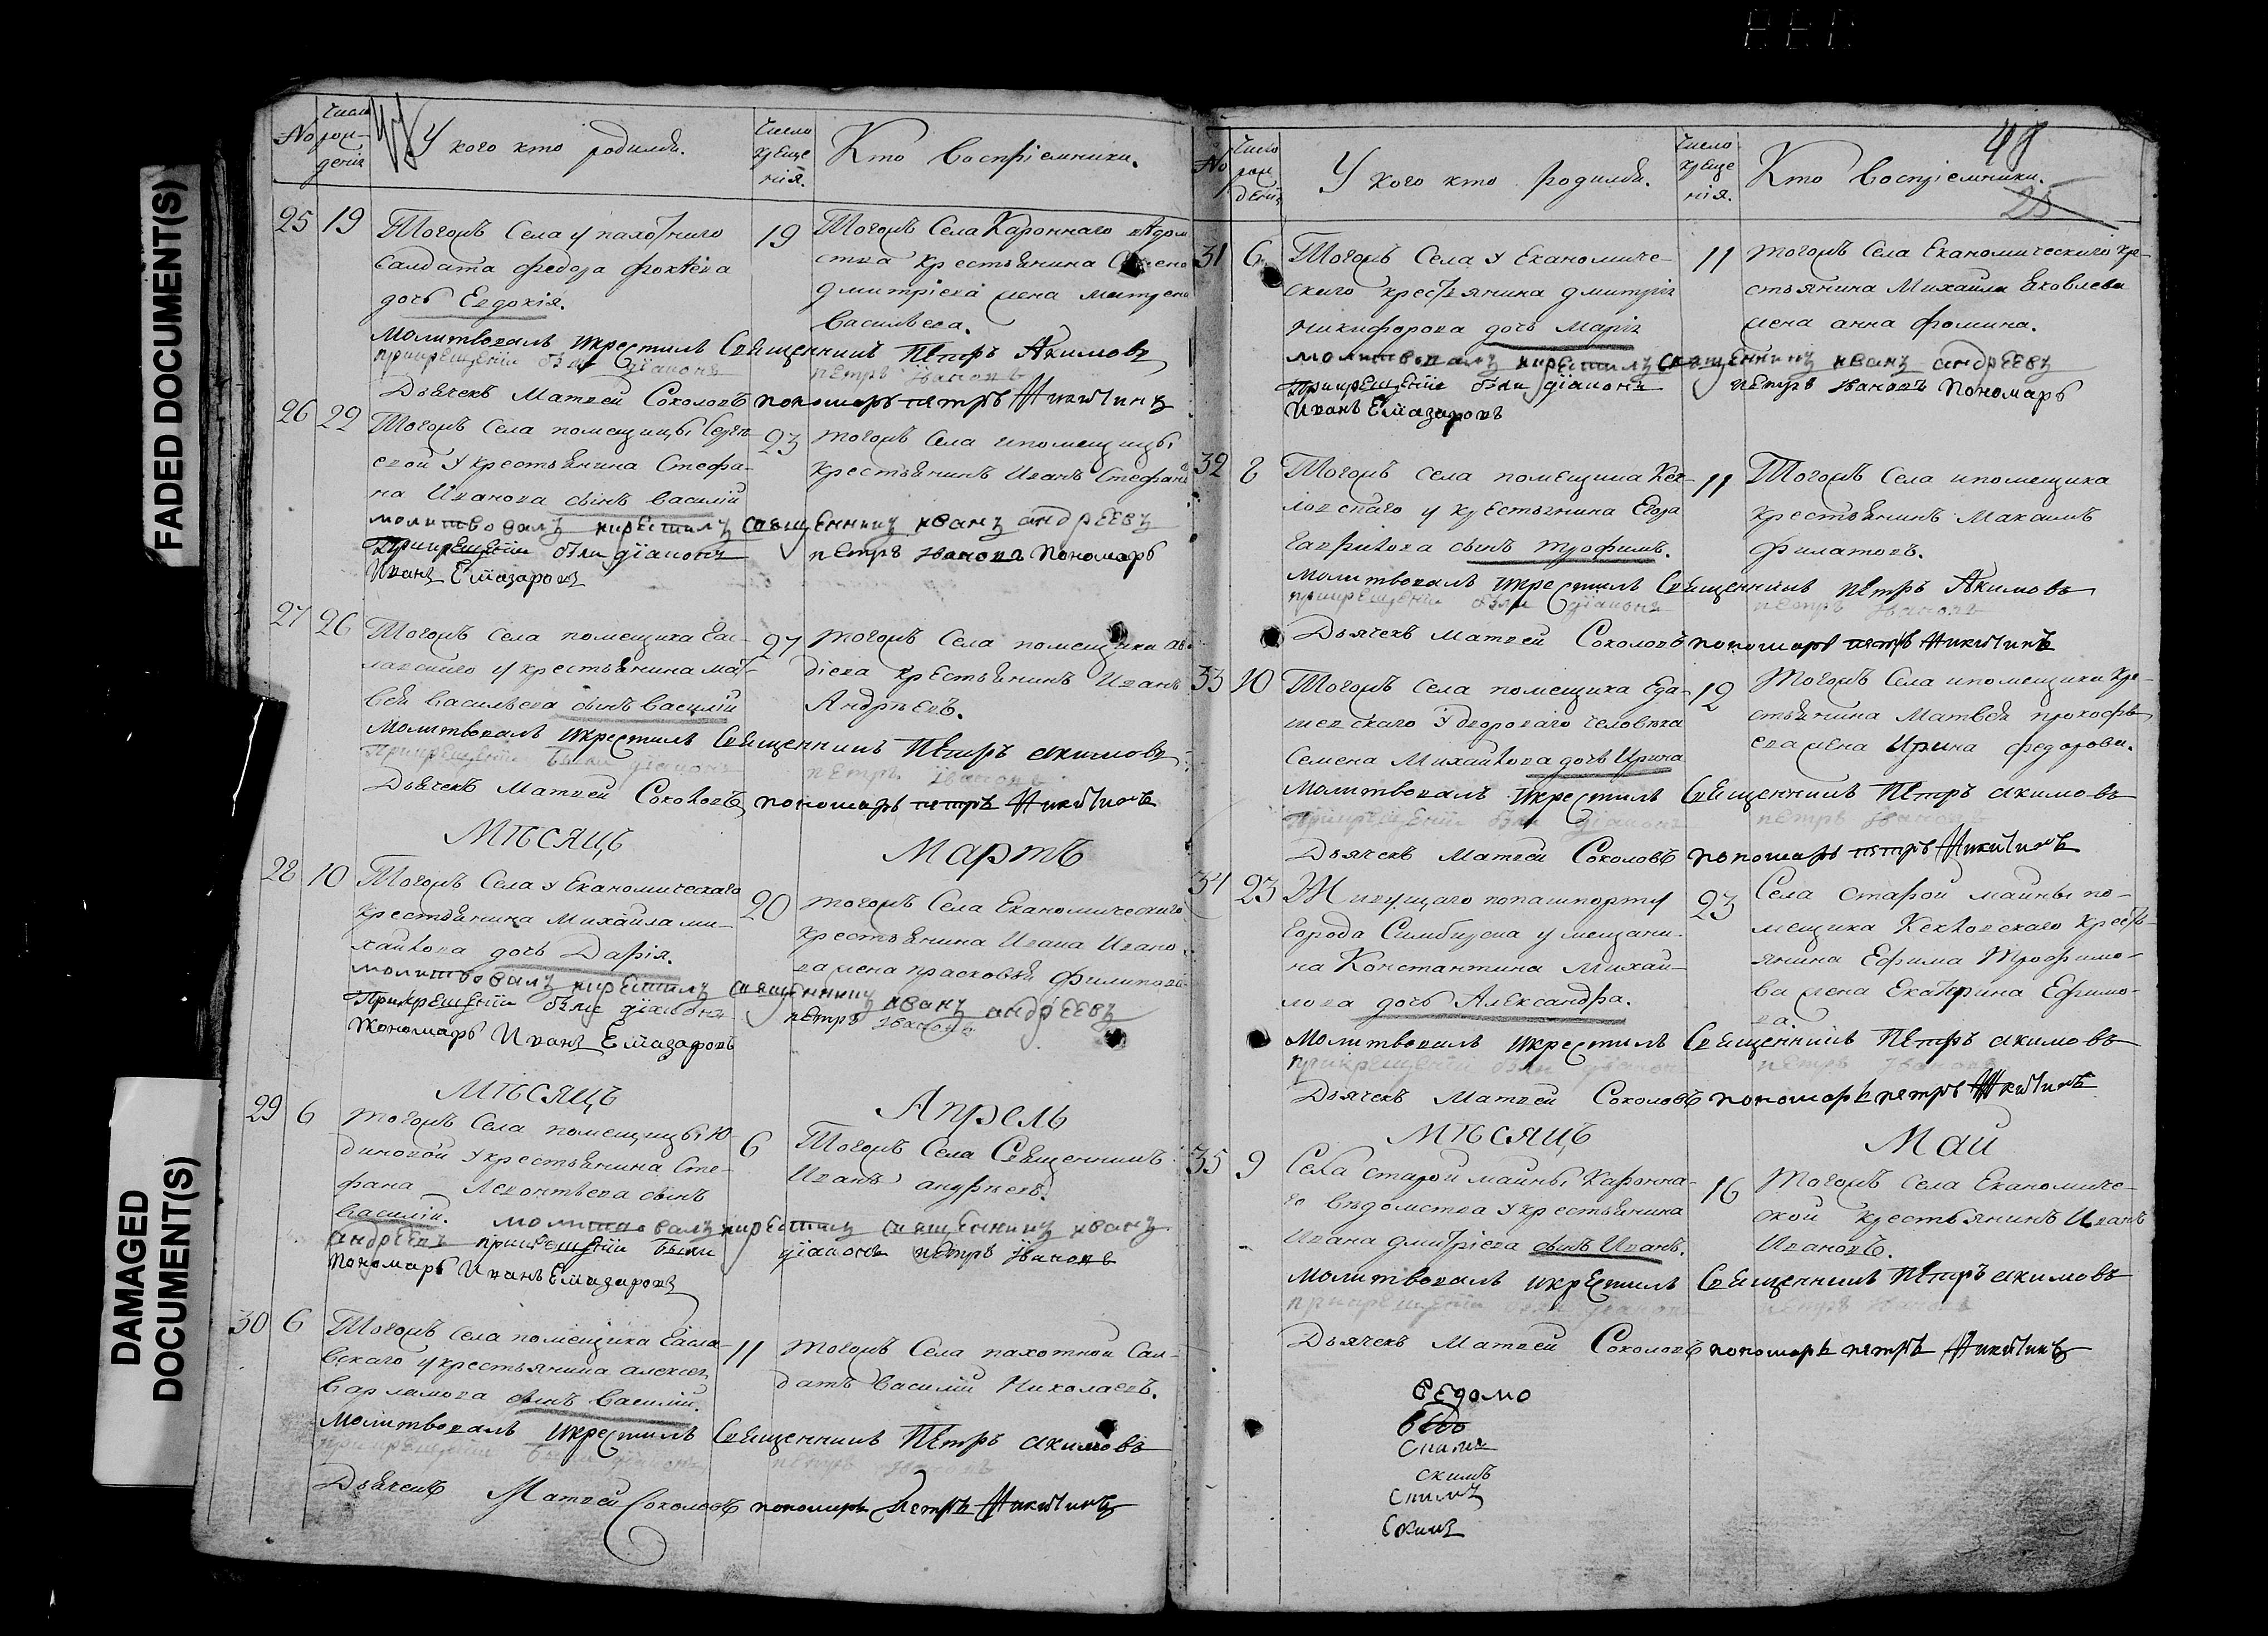 FADED DOCUMENT(S)
DAMAGED
DOCUMENT(S)
No
Число рождения
У кого кто родился.
Число крещения.
Кто воспріемники.
25 19
Тогожъ Села у пахотнаго
Салдата Федора Фоктева
дочь Евдокія.
19
Тогожъ Села Кароннаго ведом
ства крестьянина Семено
Дмитріева жена Матрена
Васильева.
Молитвовалъ икрестилъ Священникъ Петръ Акимовъ
Прикрещеніи были діаконъ Петръ Ивановъ
Дьячекъ Матвей Соколовъ пономарь петръ Никитинъ
26 22
Тогожъ Села помещицы
евой у крестьянина Стефа-
на Иванова сынъ Василій
23
Тогожъ Села ипомещицы
крестьянинъ Иванъ Стефан
молитвовалъ икрестилъ священникъ иванъ андреевъ
Прикрещеніи были діаконъ петръ Ивановъ Пономарь
Иванъ Елиазаровъ
27 26
Тогожъ Села помещика Еас-
лавскаго у крестьянина Мат-
вея Васильева сынъ Василій
27
Тогожъ Села помещика Ав-
діева крестьянинъ Иванъ
Андреевъ.
Молитвовалъ икрестилъ Священникъ Петръ акимовъ
Прикрещеніи были діаконъ петръ Ивановъ
Дьячекъ Матвей Соколовъ пономарь петръ Никитинъ
Мѣсяцъ Мартъ
28 10
Тогожъ Села у Економическаго
крестьянина Михаила Ми-
хайлова дочь Дарія.
20
Тогожъ Села Економическаго
крестьянина Ивана Ивано-
ва жена Прасковья Филипова
молитвовалъ икрестилъ священникъ иванъ андреевъ
Прикрещеніи были діаконъ петръ Ивановъ
Пономарь Иванъ Елиазаровъ
Мѣсяцъ Апрель
29 6
Тогожъ Села помещицы Ю-
диновой у крестьянина Сте-
фана Леонтьева сынъ
Василій.
6
Тогожъ Села Священникъ
Иванъ андреевъ.
молитвовалъ икрестилъ священникъ иванъ
андреевъ прикрещеніи были діаконъ петръ Ивановъ
Пономарь Иванъ Елиазаровъ
30 6
Тогожъ Села помещика Еасла-
вскаго у крестьянина алексея
Варламова сынъ Василій.
11
Тогожъ Села пахотной Сал-
датъ Василій Николаевъ.
Молитвовалъ икрестилъ Священникъ Петръ акимовъ
прикрещеніи были діаконъ петръ Ивановъ
Дьячекъ Матвей Соколовъ пономарь Петръ Никитинъ
No
Число рождения
У кого кто родился.
Число крещения.
Кто воспріемники.
48
25
31 6
Тогожъ Села у Економиче-
скаго крестьянина Дмитрія
Никифорова дочь Марія
11
Тогожъ Села Економическаго кре-
стьянина Михаила Яковлева
жена анна Фомина.
молитвовалъ икрестилъ священникъ иванъ андреевъ
Прикрещеніи были діаконъ петръ Ивановъ Пономарь
Иванъ Елиазаровъ
32 8
Тогожъ села помещика Кек-
ловскаго у крестьянина Егора
Гаврилова сынъ Трофимъ.
11
Тогожъ Села ипомещика
крестьянинъ Макаимъ
Филатовъ.
Молитвовалъ икрестилъ Священникъ Петръ Акимовъ
прикрещеніи были діаконъ петръ Ивановъ
Дьячекъ Матвей Соколовъ пономарь петръ Никитинъ
33 10
Тогожъ Села помещика Еда-
шевскаго у двороваго человека
Семена Михайлова дочь Ирина
12
Тогожъ Села ипомещика кре-
стьянина Матвея Прокофь-
ева жена Ирина Федорова.
Молитвовалъ икрестилъ Священникъ Петръ акимовъ
Прикрещеніи были діаконъ петръ Ивановъ
Дьячекъ Матвей Соколовъ пономарь петръ Никитинъ
34 23
Живущаго попашпорту
города Симбирска у мещани-
на Константина Михай-
лова дочь Александра.
23
Села Старой майны по-
мещика Кекловскаго кресть-
янина Ефима Трофимо-
ва жена Екатрина Ефимо-
ва.
Молитвовалъ икрестилъ Священникъ Петръ акимовъ
Прикрещеніи были діаконъ петръ Ивановъ
Дьячекъ Матвей Соколовъ пономарь петръ Никитинъ
Мѣсяцъ Май
35 9
Села старой майны Каронна-
го вѣдомства у крестьянина
Ивана Дмитріева сынъ Иванъ.
16
Тогожъ Села Економиче-
ской крестьянинъ Иванъ
Ивановъ.
Молитвовалъ икрестилъ Священникъ Петръ акимовъ
прикрещеніи были діаконъ петръ Ивановъ
Дьячекъ Матвей Соколовъ пономарь петръ Никитинъ
ведомо